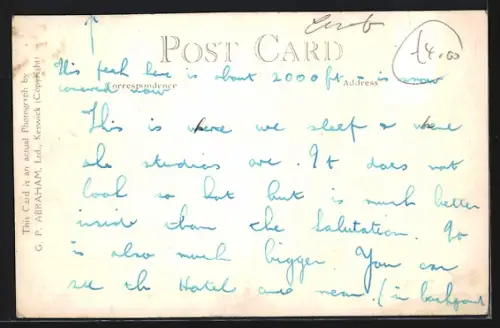 £4.00
POST CARD
This peak here is about 2000 ft - is snow
Correspondence
Address
covered now
This is where we sleep & where
the studios are. It does not
look so hot but is much better
inside than the Salutation. Is
is also much bigger. You can
see the Hotel one near (in background
This Card is an actual Photograph by
G. P. ABRAHAM, Ltd., Keswick (Copyright)